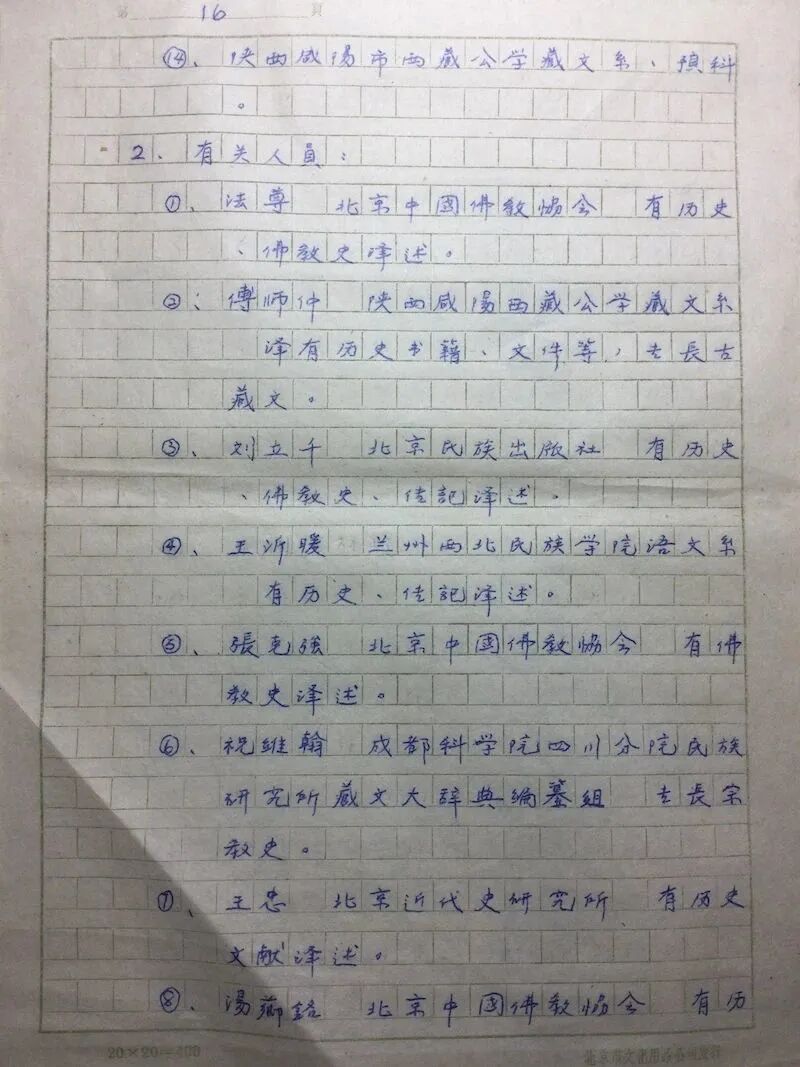 第 16 頁
⑭、陕西咸陽市西藏公学藏文系、預科
。
2、有关人員：
①、法尊 北京中國佛教協会 有历史
、佛教史译述。
②、傅师仲 陕西咸陽西藏公学藏文系
译有历史书籍、文件等，专長古
藏文。
③、刘立千 北京民族出版社 有历史
、佛教史、传記译述。
④、王沂暖 兰州西北民族学院语文系
有历史、传記译述。
⑤、張克強 北京中國佛教協会 有佛
教史译述。
⑥、祝维翰 成都科学院四川分院民族
研究所藏文大辞典编纂组 专長宗
教史。
⑦、王忠 北京近代史研究所 有历史
文献译述。
⑧、湯薌銘 北京中國佛教協会 有历
20×20=400